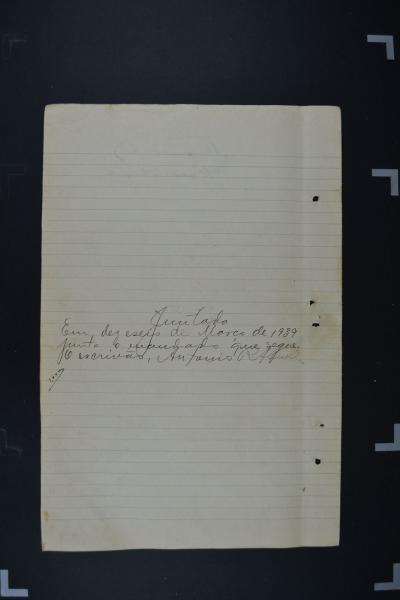 Juntada
Em dezeseis de Março de 1939
junto o mandado que segue
O escrivão, Antonio